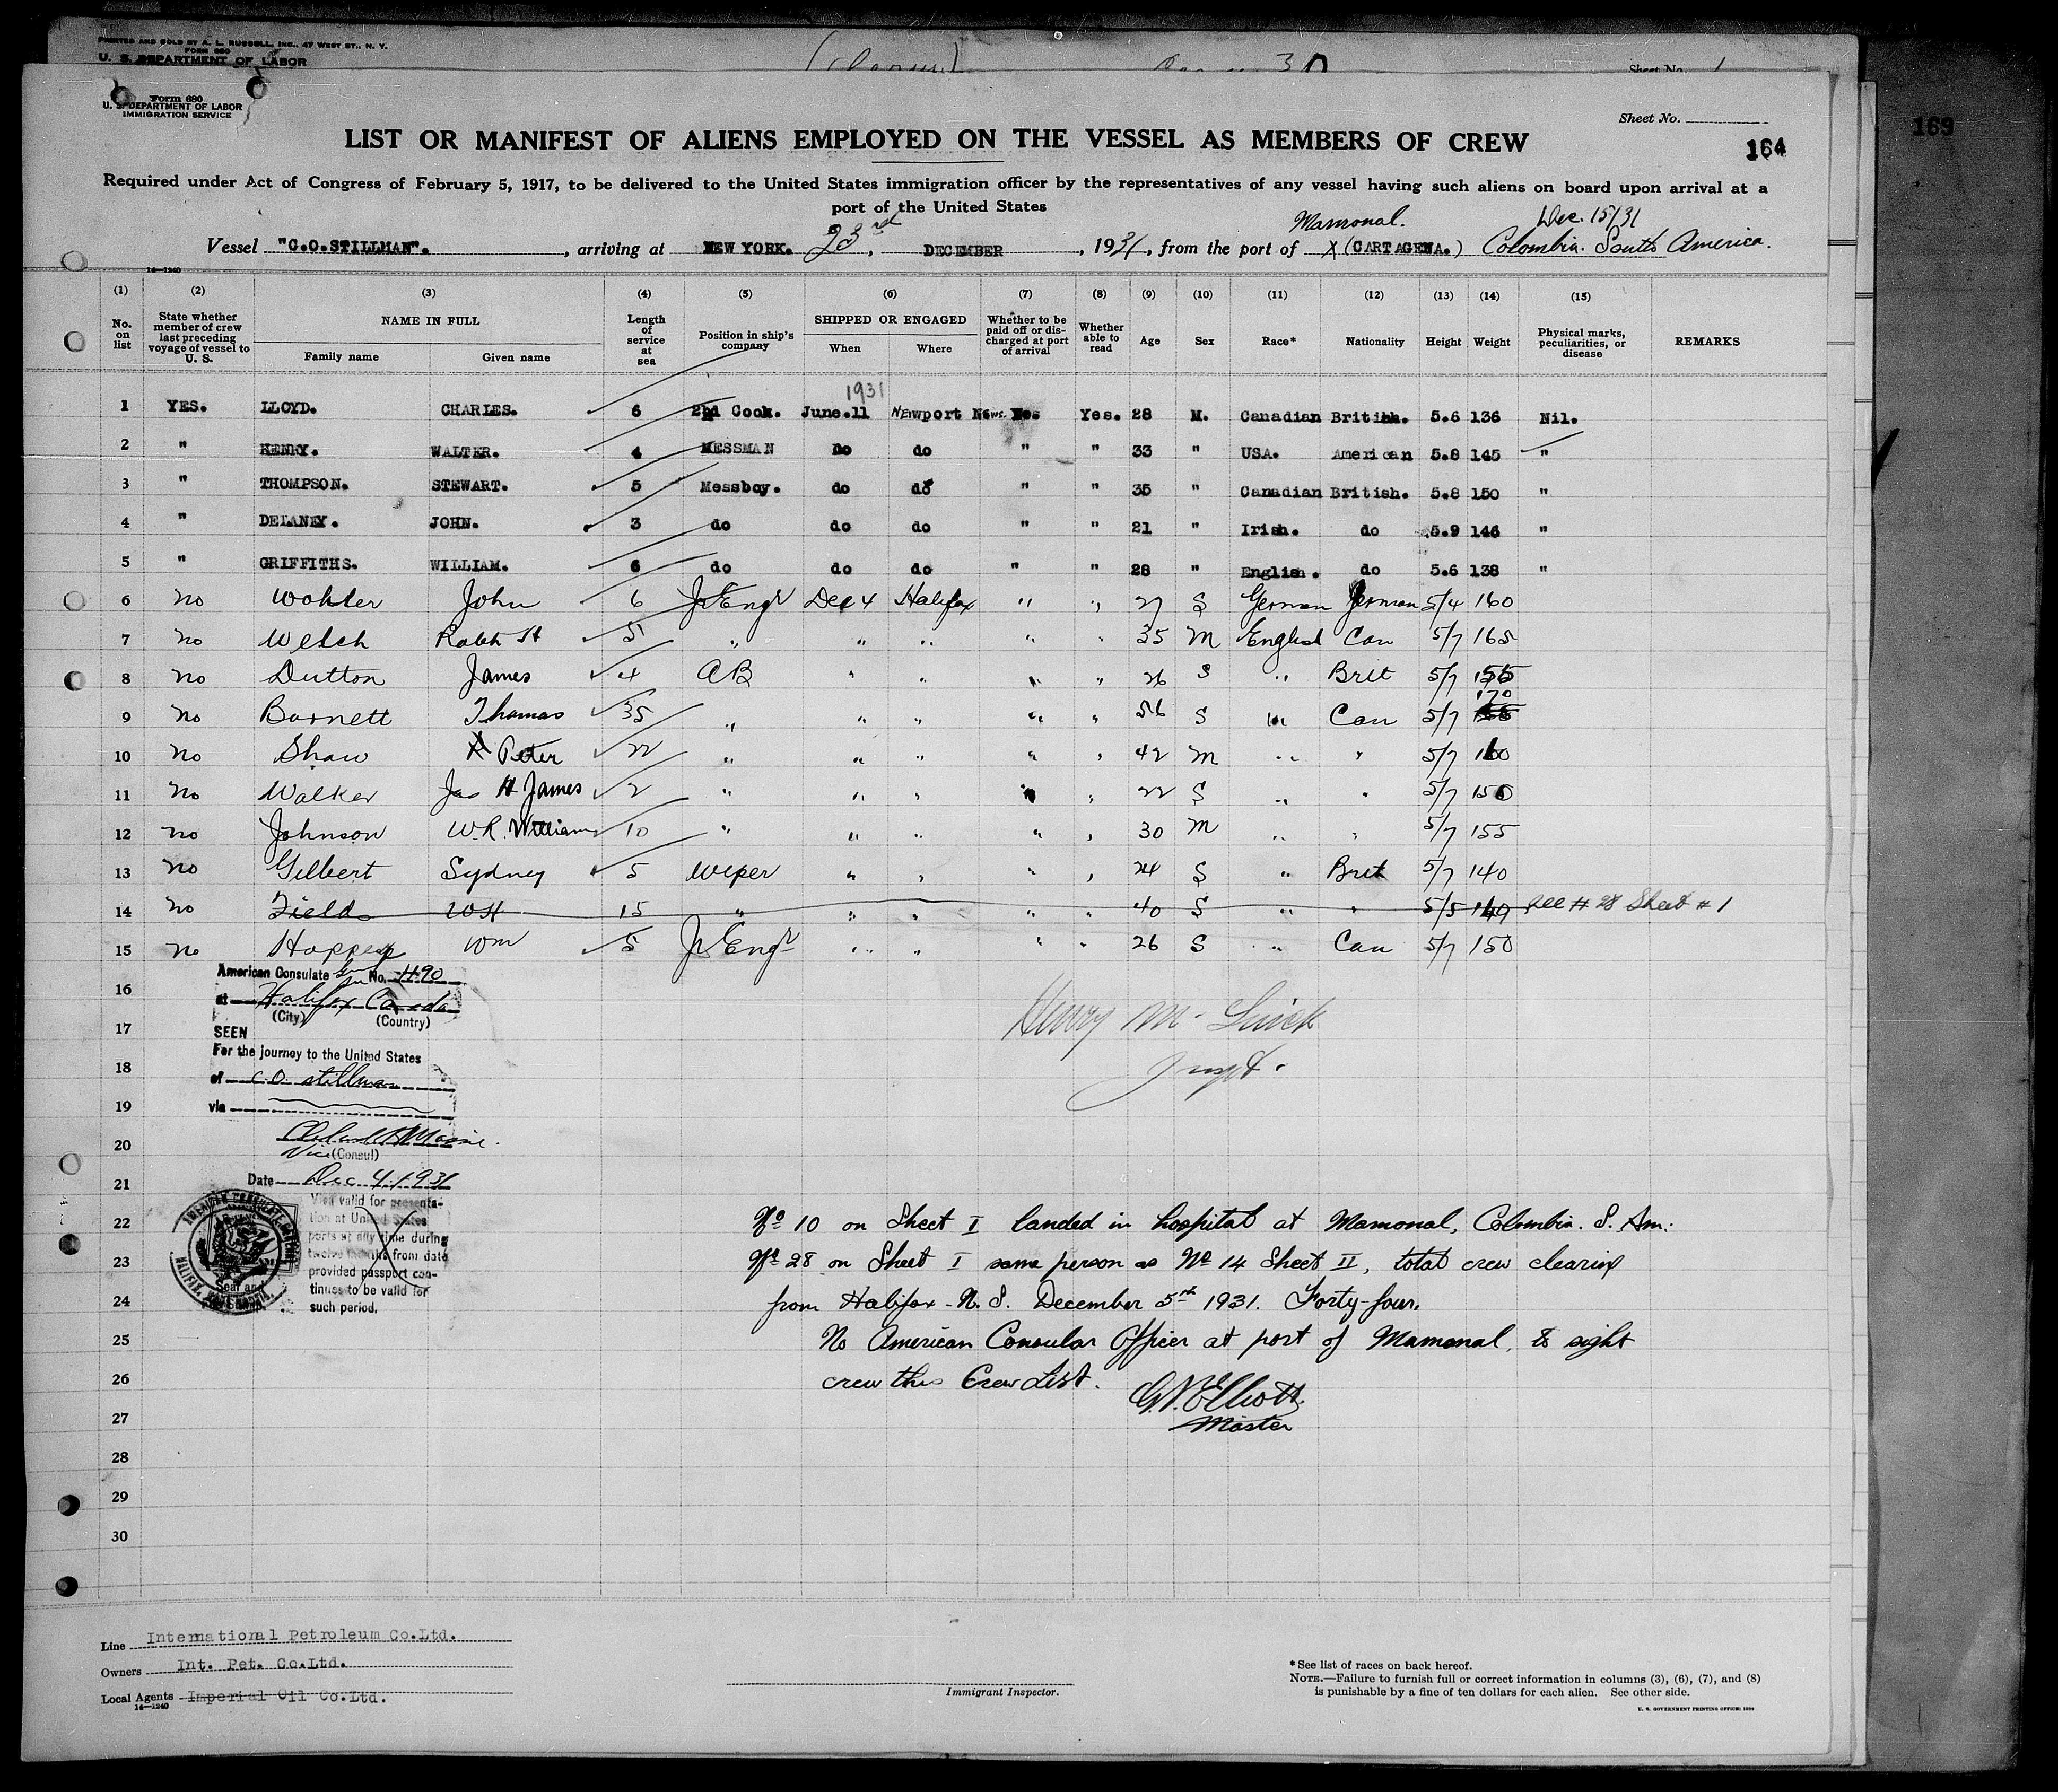 PRINTED AND SOLD BY A. L. RUSSELL, INC., 47 WEST ST., N. Y.
FORM 680
U. S. DEPARTMENT OF LABOR
Sheet No. 1
Form 680
U. S. DEPARTMENT OF LABOR
IMMIGRATION SERVICE
Sheet No.
169
LIST OR MANIFEST OF ALIENS EMPLOYED ON THE VESSEL AS MEMBERS OF CREW
164
Required under Act of Congress of February 5, 1917, to be delivered to the United States immigration officer by the representatives of any vessel having such aliens on board upon arrival at a
port of the United States
Mamonal. Dec. 15/31
Vessel "C.O.STILLMAN"., arriving at NEW YORK. 23rd, DECEMBER, 1931, from the port of X (CARTAGENA.) Colombia. South America.
14-1240
(1) (2) (3) (4) (5) (6) (7) (8) (9) (10) (11) (12) (13) (14) (15)
No. on list | State whether member of crew last preceding voyage of vessel to U. S. | NAME IN FULL Family name Given name | Length of service at sea | Position in ship's company | SHIPPED OR ENGAGED When Where | Whether to be paid off or discharged at port of arrival | Whether able to read | Age | Sex | Race* | Nationality | Height | Weight | Physical marks, peculiarities, or disease | REMARKS
1931
1 YES. LLOYD. CHARLES. 6 2nd Cook. June.11 Newport News. Yes Yes. 28 M. Canadian British. 5.6 136 Nil.
2 " HENRY. WALTER. 4 MESSMAN Do do " " 33 " USA. American 5.8 145 "
3 " THOMPSON. STEWART. 5 Messboy. do do " " 35 " Canadian British. 5.8 150 "
4 " DELANEY. JOHN. 3 do do do " " 21 " Irish. do 5.9 146 "
5 " GRIFFITHS. WILLIAM. 6 do do do " " 28 " English. do 5.6 138 "
6 no Wohler John 6 Jr Engr Dec 4 Halifax " " 27 S German German 5/4 160
7 no Welch Ralph H 5 " " " " " 35 M English Can 5/7 165
8 no Dutton James 4 AB " " " " 26 S " Brit 5/7 155
9 no Barnett Thomas 35 " " " " " 56 S " Can 5/7 170
10 no Shaw Peter 22 " " " " " 42 M " " 5/7 160
11 no Walker Jas H James 2 " " " " " 22 S " " 5/7 150
12 no Johnson W.R. William 10 " " " " " 30 M " " 5/7 155
13 no Gilbert Sydney 5 Wiper " " " " 24 S " Brit 5/7 140
14 no Fields WH 15 " " " " " 40 S " " 5/5 149 see # 28 Sheet # 1
15 no Wm 5 Jr Engr " " " " 26 S " Can 5/7 150
American Consulate Gen No. 490
16
at Halifax Canada
(City) (Country)
17
SEEN
For the journey to the United States
18
of C.O. Stillman
19
via
20
Vice (Consul)
Henry M.
Inspt.
Date Dec 4, 1931
21
Visa valid for presenta-
tion at United States
ports at any time during
twelve months from date
provided passport con-
tinues to be valid for
such period.
AMERICAN CONSULATE GENERAL
HALIFAX, NOVA SCOTIA
Seal and
22 No 10 on Sheet I landed in hospital at Mamonal, Colombia. S. Am:
23 No 28 on Sheet I same person as No 14 Sheet II, total crew clearing
24 from Halifax - N. S. December 5th 1931. Forty-four.
25 No American Consular Officer at port of Mamonal, to sight
26 crew this Crew List.
G.N. Elliott
27 Master
28
29
30
Line International Petroleum Co.Ltd.
Owners Int. Pet. Co.Ltd.
Local Agents Imperial Oil Co.Ltd.
14-1240
Immigrant Inspector.
*See list of races on back hereof.
NOTE.—Failure to furnish full or correct information in columns (3), (6), (7), and (8)
is punishable by a fine of ten dollars for each alien. See other side.
U. S. GOVERNMENT PRINTING OFFICE: